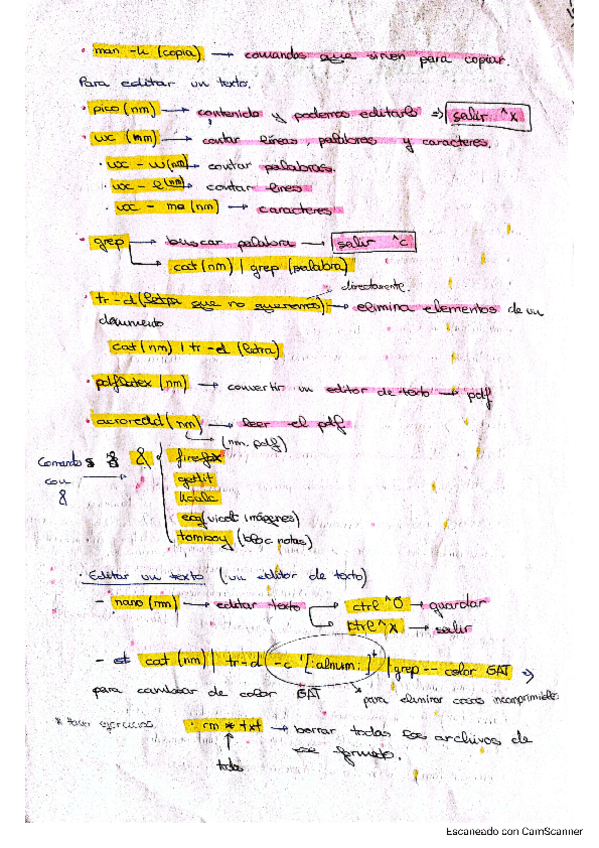 · man -k (copia) → comandos que sirven para copiar.
Para editar un texto.
· pico (nm) → contenido y podemos editarlo ⇒ salir ^x
· wc (nm) → contar líneas, palabras y caracteres.
· wc -w (nm) → contar palabras.
· wc -l (nm) → contar lines
· wc -m (nm) → caracteres
· grep → buscar palabra → salir ^c
cat (nm) | grep (palabra)
directamente.
· tr -d (letra que no queremos) → elimina elementos de un
documento
cat (nm) | tr -d (letra)
· pdflatex (nm) → convertir un editor de texto → pdf
· acroread (nm) → leer el pdf
(nm. pdf)
Comandos & firefox
con gedit
& kcalc
eog (vicet imágenes)
tomboy (bloc notas)
· Editar un texto (un editor de texto)
- nano (nm) → editar texto → ctrl ^O → guardar
ctrl ^X → salir
- cat (nm) | tr -d -c '[:alnum:]' | grep -- color GAT →
para cambiar de color GAT para eliminar cosas incomprimibles
* Hacer ejercicios · rm * txt → borrar todos los archivos de
ese formato.
todo
Escaneado con CamScanner